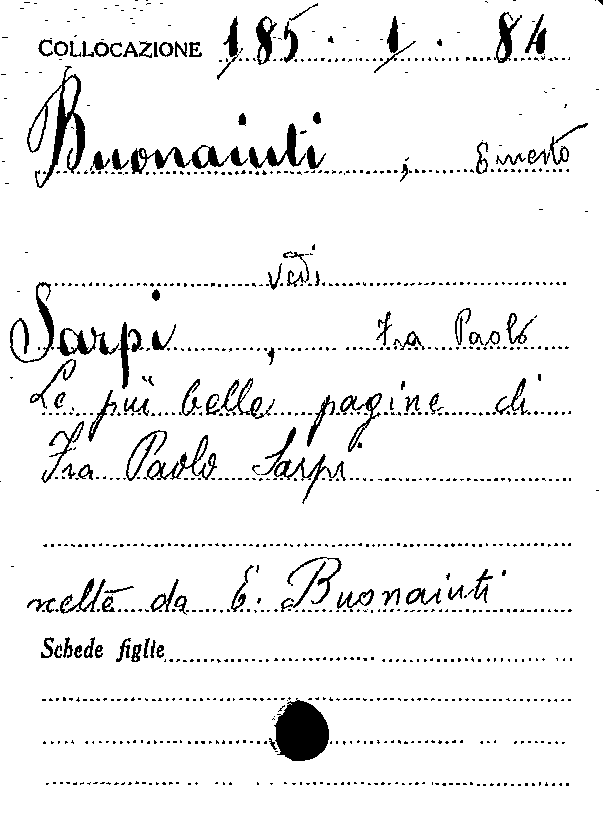 COLLOCAZIONE 185. 1. 84
Buonaiuti, Ernesto
vedi
Sarpi, Fra Paolo
Le più belle pagine di
Fra Paolo Sarpi
scelte da E. Buonaiuti
Schede figlie